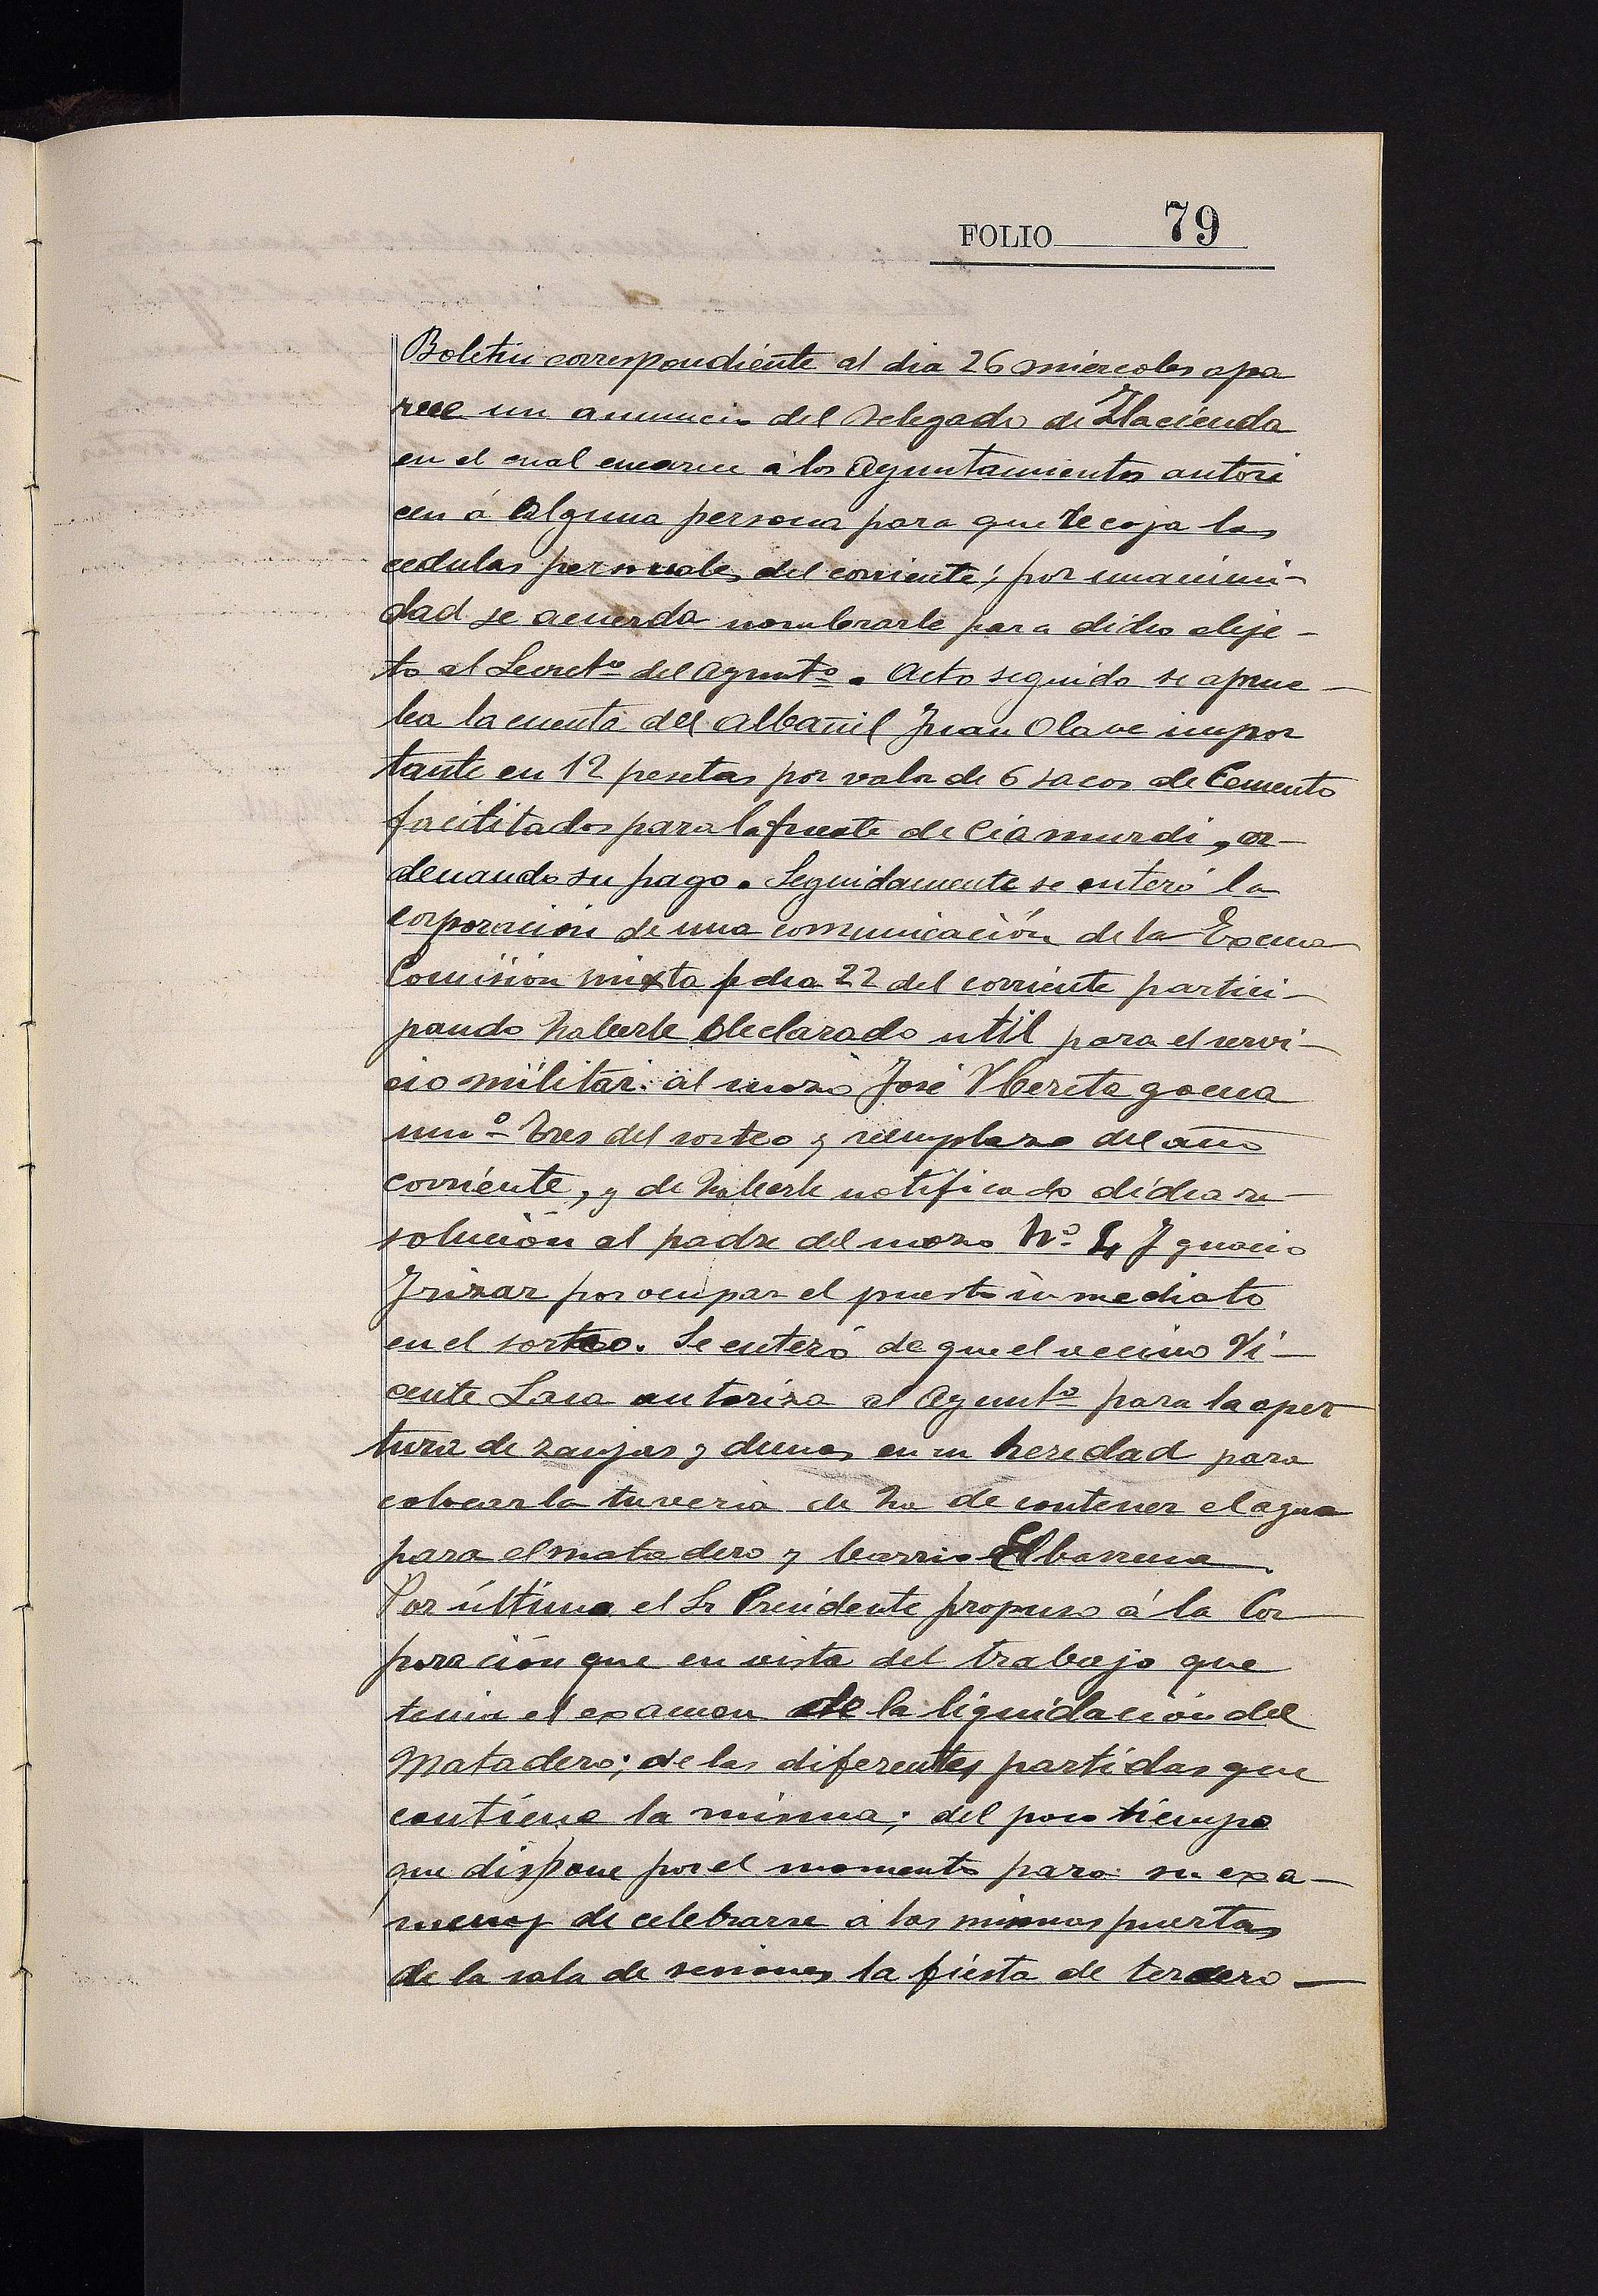 FOLIO 79
Boletin correspondiente al dia 26 miercoles apa
rece un anuncio del Delegado de Hacienda
en el cual encarece á los Ayuntamientos autori
cen á alguna persona para que recoja las
cedulas personales del corriente; por unanimi-
dad se acuerda nombrarle para dicho obje-
to al Secretº del Ayuntº. Acto seguido se aprue-
ba la cuenta del albañil Juan Olave impor
tante en 12 pesetas por valor de 6 sacos de Cemento
facilitados para la fuente de Ciamurdi, or-
denando su pago. Seguidamente se enteró la
Corporación de una comunicación de la Excma
Comisión mixta fecha 22 del corriente partici-
pando haberle declarado util para el servi-
cio militar al mozo José Uberetagoena
numº tres del sorteo y reemplazo del año
corriente, y de haberle notificado dicha re-
solución al padre del mozo Nº 4 Ignacio
Irizar por ocupar el puesto inmediato
en el sorteo. Se enteró de que el vecino Vi-
cente Lasa autoriza al Ayuntº para la aper
tura de zanjas y demas en su heredad para
colocar la tuveria de ha de contener el agua
para el matadero y barrio Elbarrena.
Por último el Sr Presidente propuso á la Cor
poración que en vista del trabajo que
tenia el examen de la liquidación del
Matadero; de las diferentes partidas que
contiene la misma; del poco tiempo
que dispone por el momento para su exa-
men y de celebrarse á las mismas puertas
de la sala de sesiones la fiesta de tercero-